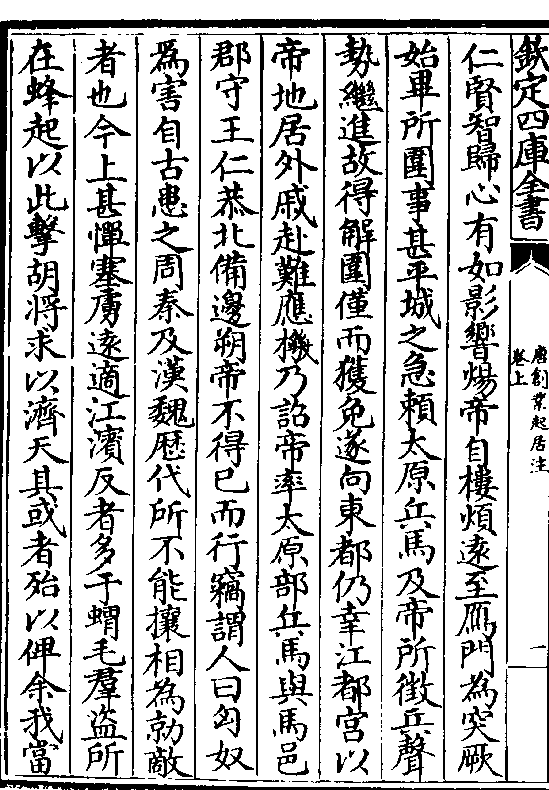 欽定四庫全書
唐創業起居注
卷上
一
仁賢智歸心有如影響煬帝自樓煩遠至雁門為突厥
始畢所圍事甚平城之急賴太原兵馬及帝所徵兵聲
勢繼進故得解圍僅而獲免遂向東都仍幸江都宮以
帝地居外戚赴難應機乃詔帝率太原部兵馬與馬邑
郡守王仁恭北備邊朔帝不得已而行竊謂人曰匈奴
為害自古患之周秦及漢魏歷代所不能攘相為勍敵
者也今上甚憚塞虜遠適江濱反者多于蝟毛羣盜所
在蜂起以此擊胡將求以濟天其或者殆以俾余我當